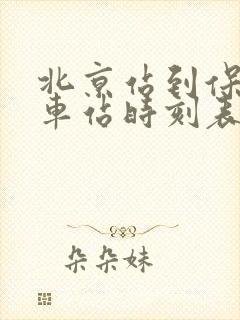 北京佔到保
車佔時刻表
朵朵妹